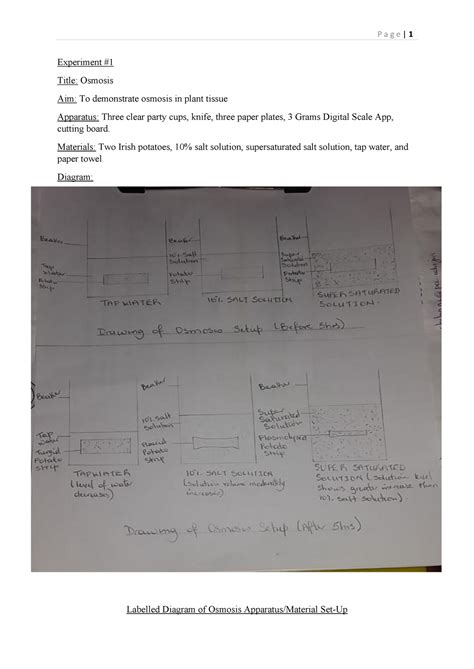 Page | 1
Experiment #1
Title: Osmosis
Aim: To demonstrate osmosis in plant tissue
Apparatus: Three clear party cups, knife, three paper plates, 3 Grams Digital Scale App,
cutting board.
Materials: Two Irish potatoes, 10% salt solution, supersaturated salt solution, tap water, and
paper towel
Diagram:
Beaker
Tap
Water
Potato
Strip
TAPWATER
Beaker
10% Salt
Solution
Potato
Strip
10% SALT SOLUTION
Beaker
Super
Solution
Potato
Strip
SUPERSATURATED
SOLUTION
Drawing of Osmosis Setup (Before 5hrs)
Beaker
Tap
Water
Turgid
Potato
Strip
TAPWATER
(level of water
decreases)
Beaker
10% Salt
Solution
Flaccid
Potato
Strip
10% SALT SOLUTION
(Solution volume moderately
increases)
Beaker
Super
Saturated
Solution
Plasmolyzed
Potato
Strip
SUPER SATURATED
SOLUTION (Solution
Shows greater increase than
10% Salt Solution)
Drawing of Osmosis Setup (After 5hrs)
Labelled Diagram of Osmosis Apparatus/Material Set-Up